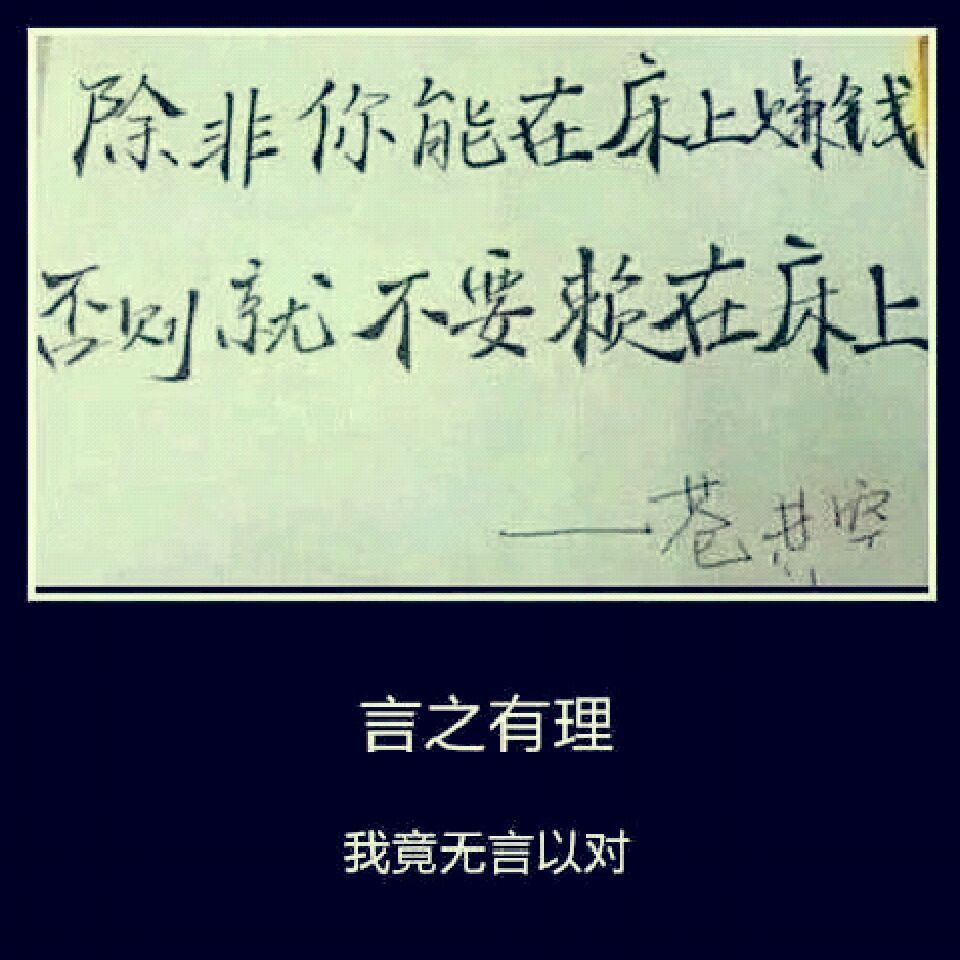 除非你能在床上赚钱
否则就不要赖在床上
——苍井空
言之有理
我竟无言以对